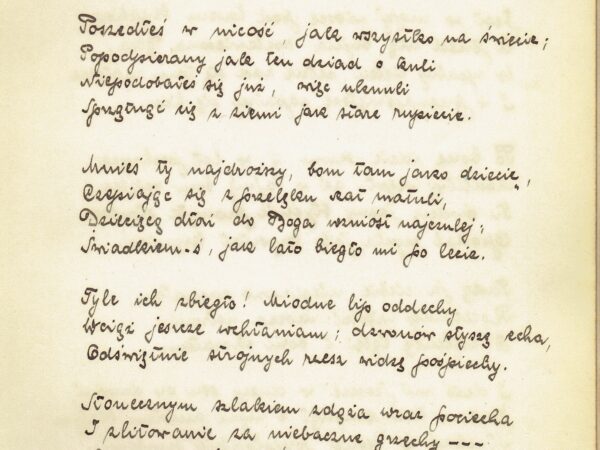 Poszedłeś w nicość, jak wszystko na świecie;
Popodpierany jak ten dziad o kuli
Niepodobałeś się już, więc uknuli
Sprzątnąć cię z ziemi jak stare rupiecie.
Mnieś ty najdroższy, bom tam jako dziecię,
Czepiając się z przelęku szat matuli,
Dziecięcą dłoń do Boga wzniósł najczulej;
Świadkiem-ś, jak lato biegło mi po lecie.
Tyle ich zbiegło! Miodne lip oddechy
Wciąż jeszcze wchłaniam; dzwonów słyszę echa,
Odświętnie strojnych rzesz widzę pośpiechy.
Słonecznym szlakiem zdąża wraz pociecha
I zlitowanie za niebaczne grzechy ---